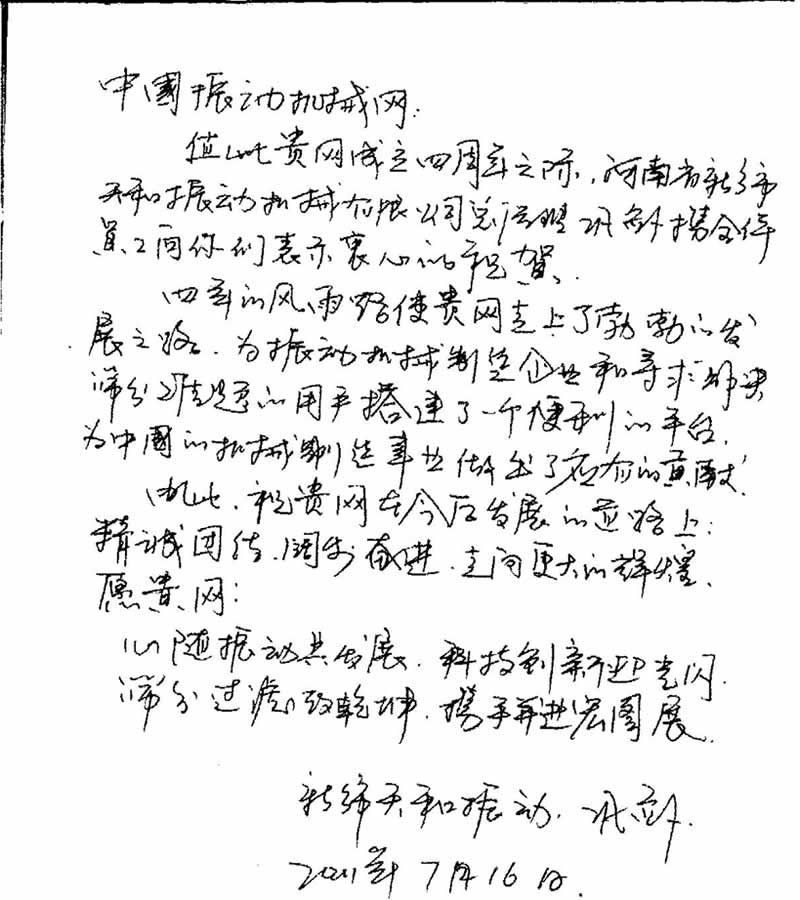 中國振动机械网:
值此贵网成立四周年之际,河南省新乡市
天和振动机械有限公司总经理 携全体
员工向你们表示衷心的祝贺.
四年的风雨路使贵网走上了勃勃的发
展之路.为振动机械制造企业和寻求解决
筛分难题的用户搭建了一个便利的平台.
为中國的机械制造事业做出了应有的贡献.
因此.祝贵网在今后发展的道路上:
精诚团结.阔步奋进.走向更大的辉煌.
愿贵网:
心随振动共发展.科技创新迎光闪.
筛分过滤 乾坤.携手再进宏图展.
新乡天和振动.
2011年7月16日.